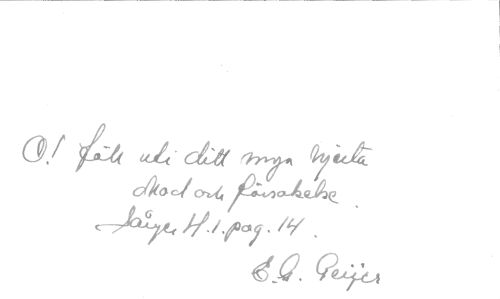 O! fäll uti ditt mya hjerta
Mod och försakelse.
Sånger H.1. pag. 14.
E. G. Geijer